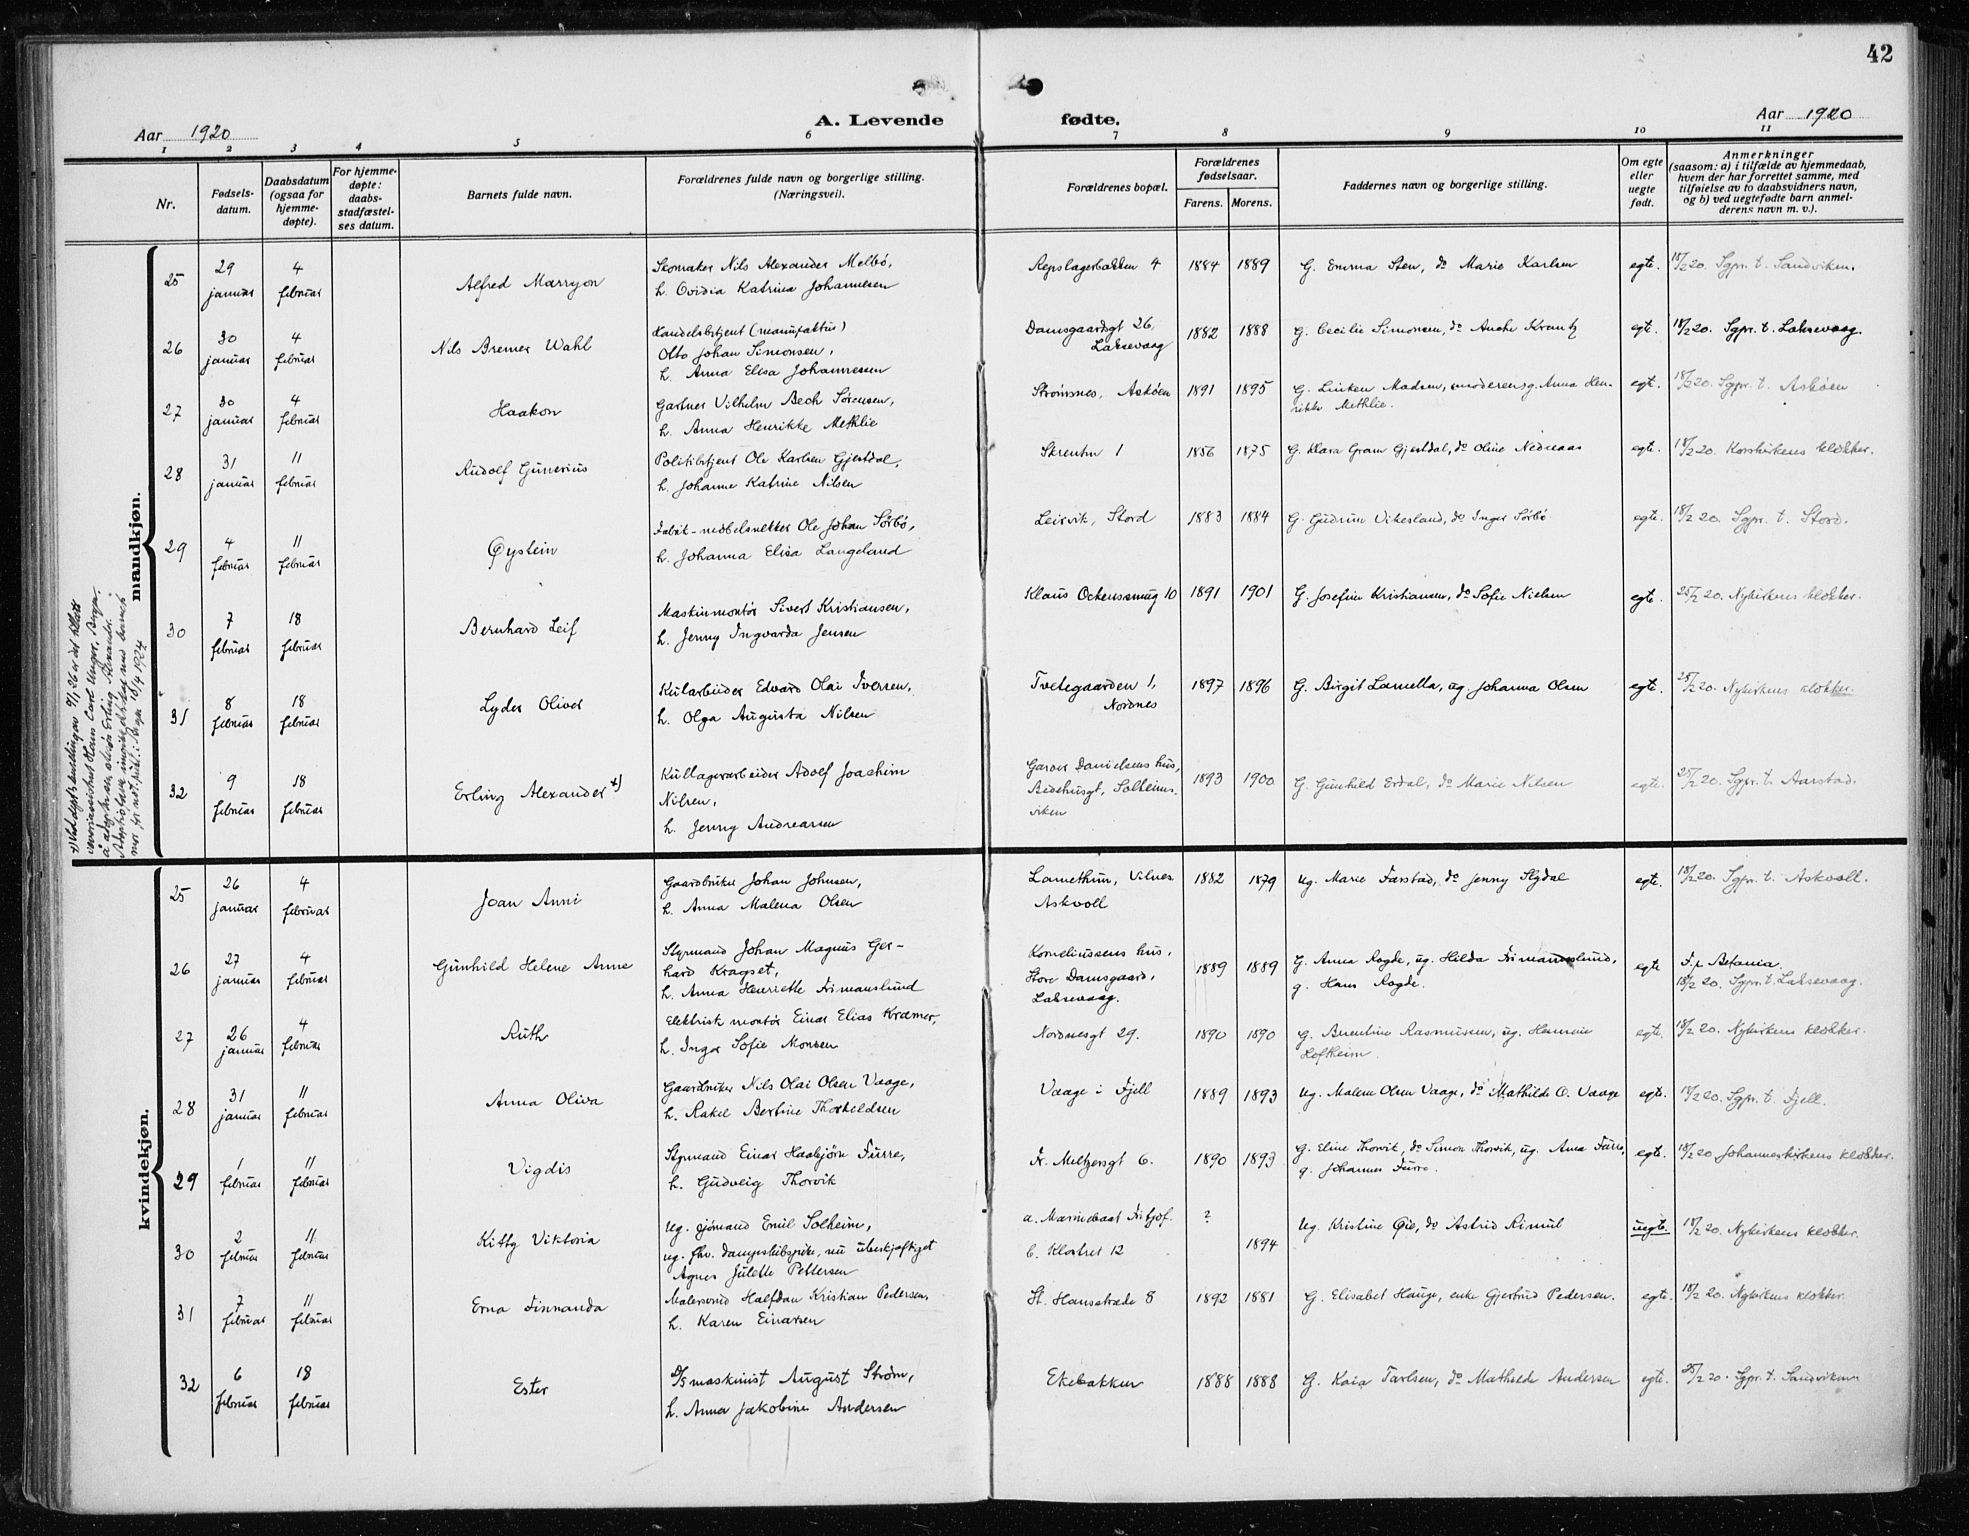 42
Aar 1920
A. Levende fødte.
Aar 1920
1 2 3 4 5 6 7 8 9 10 11
Nr.
Fødsels-
datum.
Daabsdatum
(ogsaa for
hjemme-
døpte).
For hjemme-
døpte:
daabs-
stadfæstel-
ses datum.
Barnets fulde navn.
Forældrenes fulde navn og borgerlige stilling.
(Næringsvei).
Forældrenes bopæl.
Forældrenes
fødselsaar.
Farens. Morens.
Faddernes navn og borgerlige stilling.
Om egte
eller
uegte
født.
Anmerkninger
(saasom: a) i tilfælde av hjemmedaab,
hvem der har forrettet samme, med
tilføielse av to daabsvidners navn,
og b) ved uegtefødte barn anmel-
derens navn m. v.).
mandkjøn.
25 29 januar 4 februar Alfred Marryon
Skomaker Nils Alexander Melbö,
h. Ovidia Katrina Johannesen
Repslagerbakken 4 1884 1889 G. Emma Sten, do Marie Karlsen egte. 18/2 20. Sgpr. t. Sandviken.
26 30 januar 4 februar Nils Bremer Wahl
Handelsbetjent (manufaktur)
Otto Johan Simonsen,
h. Anna Elisa Johannesen
Damsgaardsgt 26,
Laksevaag
1882 1888 G. Cecilie Simonsen, do Anche Krantz egt. 18/2 20. Sgpr. t. Laksevaag.
27 30 januar 4 februar Haakon
Gartner Vilhelm Bech Sörensen,
h. Anna Henrikke Methlie
Strömsnes, Asköen 1891 1895 G. Linken Madsen, moderen g. Anna Hen-
rikke Methlie.
egt. 18/2 20. Sgpr. t. Asköen
28 31 januar 11 februar Rudolf Gunerius
Politibetjent Ole Karlsen Gjestdal,
h. Johanne Katrine Nilsen
Skrenten 1 1856 1875 G. Klara Gram Gjestdal, do Oline Nedreaas egte. 18/2 20. Korskirkens klokker.
29 4 februar 11 februar Øystein
Fabrik-möbelsnekker Ole Johan Sörbö,
h. Johanna Elisa Langeland
Leirvik, Stord 1883 1884 G. Gudrun Vikesland, do Inger Sörbö egte. 18/2 20. Sgpr. t. Stord.
30 7 februar 18 februar Bernhard Leif
Maskinmontör Sivert Kristiansen,
h. Jenny Ingvarda Jensen
Klaus Ockenssmug 10 1891 1901 G. Josefine Kristiansen, do Sofie Nielsen egte. 25/2 20. Nykirkens klokker.
31 8 februar 18 februar Lyder Oliver
Kularbeider Edvard Olai Iversen,
h. Olga Augusta Nilsen
Tvetegaarden 1,
Nordnes
1897 1896 G. Birgit Lamella, ug. Johanna Olsen egte. 25/2 20. Nykirkens klokker.
32 9 februar 18 februar Erling Alexander x)
Kullagerarbeider Adolf Joachim
Nilsen,
h. Jenny Andreasen
Garver Danielsens hus,
Bedehusgt, Solheims-
viken
1893 1900 G. Gunhild Erdal, do Marie Nilsen egte. 25/2 20. Sgpr. t. Aarstad.
kvindekjøn.
25 26 januar 4 februar Joan Anni
Gaardbruker Johan Johnsen,
h. Anna Malena Olsen
Vilnes
Askvoll
1882 1879 ug. Marie Farstad, do Jenny Sigdal egte. 18/2 20. Sgpr. t. Askvoll.
26 27 januar 4 februar Gunhild Helene Anne
Styrmand Johan Magnus Ger-
hard Kragset,
h. Anna Henriette Fimanslund
Korneliussens hus,
Store Damsgaard,
Laksevaag.
1889 1889 G. Anna Rogde, ug. Hilda Fimanslund,
g. Hans Rogde.
egte F. p. Betania.
18/2 20. Sgpr. t. Laksevaag.
27 26 januar 4 februar Ruth
Elektrisk montör Einar Elias Kræmer,
h. Inga Sofie Monsen
Nordnesgt 29. 1890 1890 G. Berentine Rasmussen, ug. Henrine
Loftheim.
egte. 18/2 20. Nykirkens klokker.
28 31 januar 11 februar Anna Oliva
Gaardbruker Nils Olai Olsen Vaage,
h. Rakel Bertine Thorkeldsen
Vaage i Fjell 1889 1893 ug. Malene Olsen Vaage, do Mathilde O. Vaage egte. 18/2 20. Sgpr. t. Fjell.
29 1 februar 11 februar Vigdis
Styrmand Einar Haabjörn Furre,
h. Gudveig Thorvik
Fr. Meltzersgt 6. 1890 1893 G. Eline Thorvik, do Simon Thorvik, ug. Anna Furre,
g. Johannes Furre.
egte. 18/2 20 Johanneskirkens klokker.
30 2 februar 11 februar Kitty Viktoria
Ug. sjömand Emil Solheim,
ug. fhv. dampskibspike, nu ubeskjæftiget
Agnes Julette Pettersen
a. Marinebaat Fritjof.
b. Klostret 12
? 1894 Ug. Kristine Øie, do Astrid Rimul uegte. 18/2 20. Nykirkens klokker.
31 7 februar 11 februar Erna Finnanda
Malersvend Halfdan Kristian Pedersen,
h. Karen Einarsen
St. Hansstræde 8 1892 1881 G. Elisabet Hauge, enke Gjertrud Pedersen. egte. 18/2 20. Nykirkens klokker.
32 6 februar 18 februar Ester
D/S maskinist August Ström,
h. Anna Jakobine Andersen
Ekebakken 1888 1888 G. Kaia Tarlsen, do Mathilde Andersen egte. 25/2 20. Sgpr. t. Sandviken